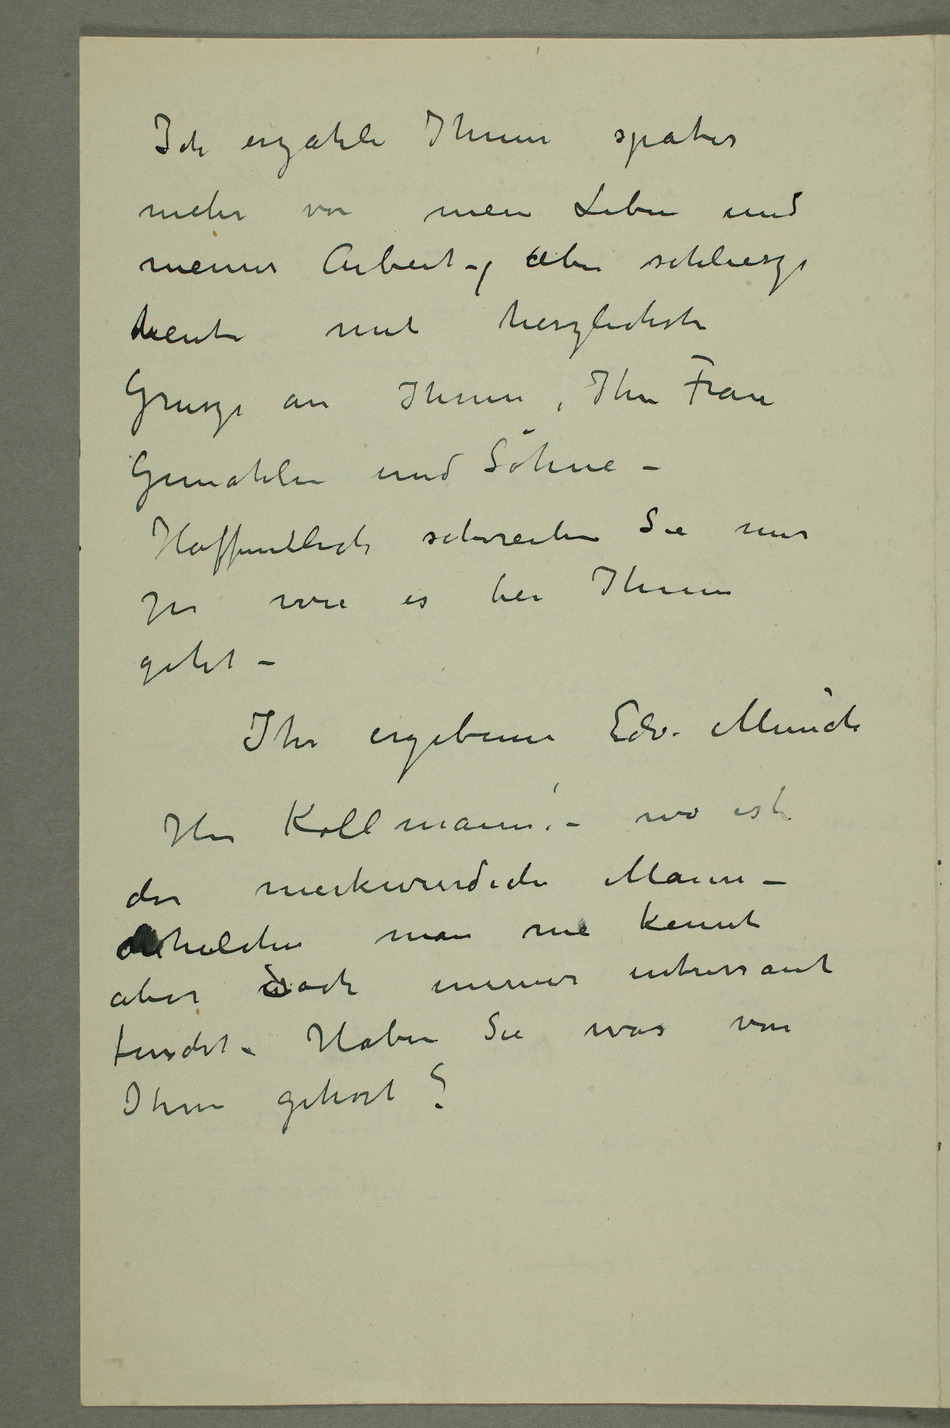 Ich erzähle Ihnen später
mehr von mein Leben und
meiner Arbeit –, aber schliesze
heute mit herzlichste
Grusze an Ihnen, Ihre Frau
Gemahlin und Söhne –
Hoffentlich schreiben Sie mir
ja wie es bei Ihnen
geht –
Ihr ergebener Edv. Munch
Herr Kollmann! – wo ist
der merkwurdiche Mann –
man nie kennt
aber doch immer intressant
findet – Haben Sie was von
Ihm gehört?